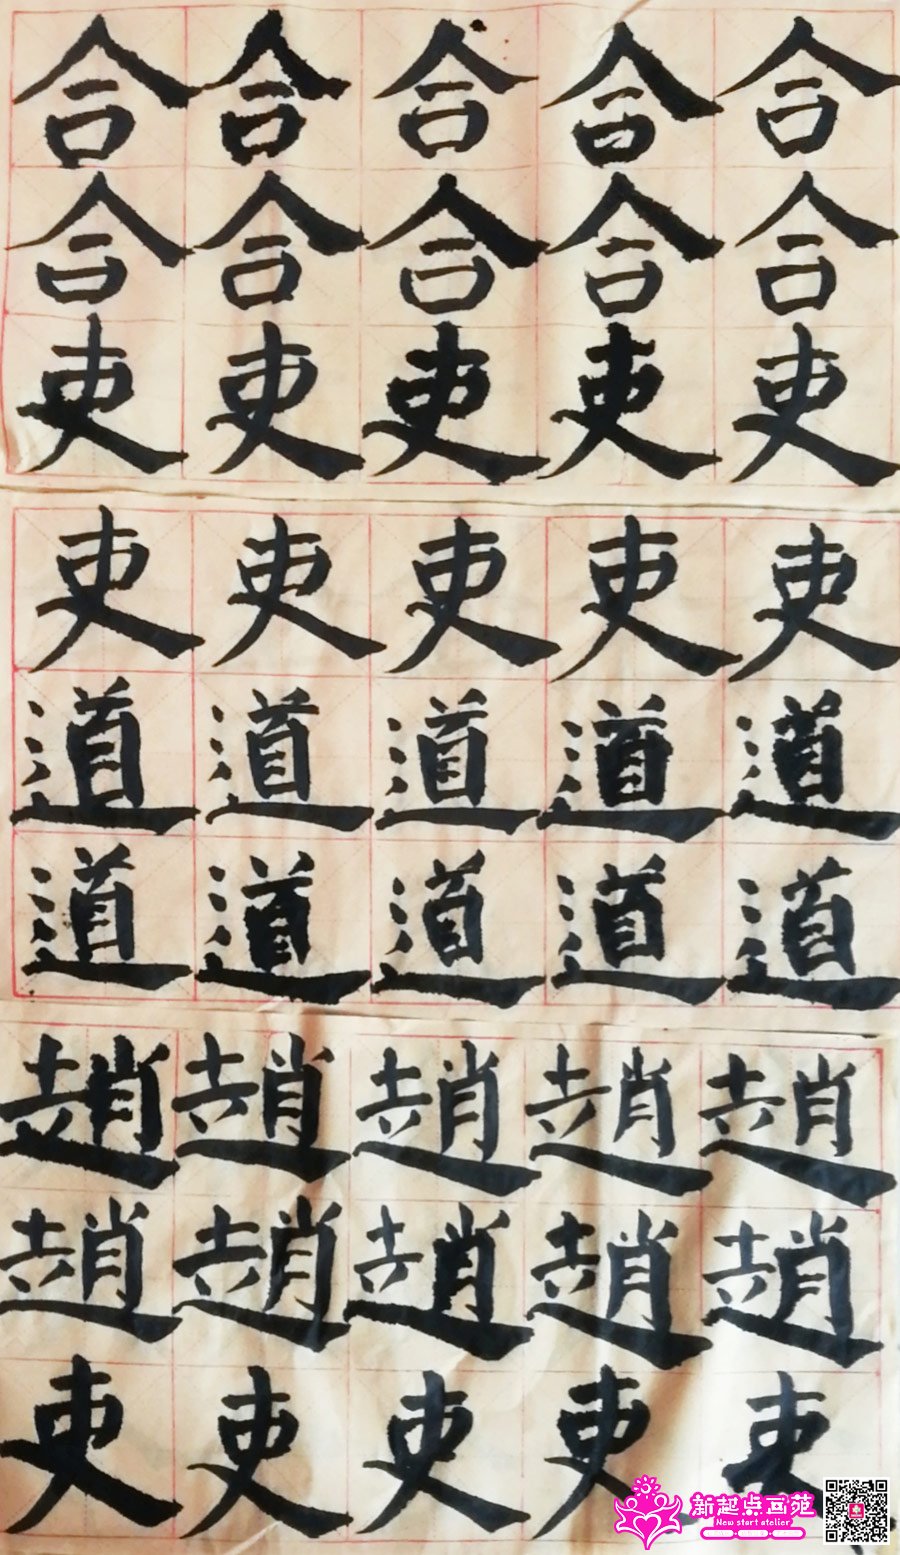 合合合合合
合合合合合
吏吏吏吏吏
吏吏吏吏吏
道道道道道
道道道道道
趙趙趙趙趙
趙趙趙趙趙
吏吏吏吏吏
新起点画苑
New start atelier